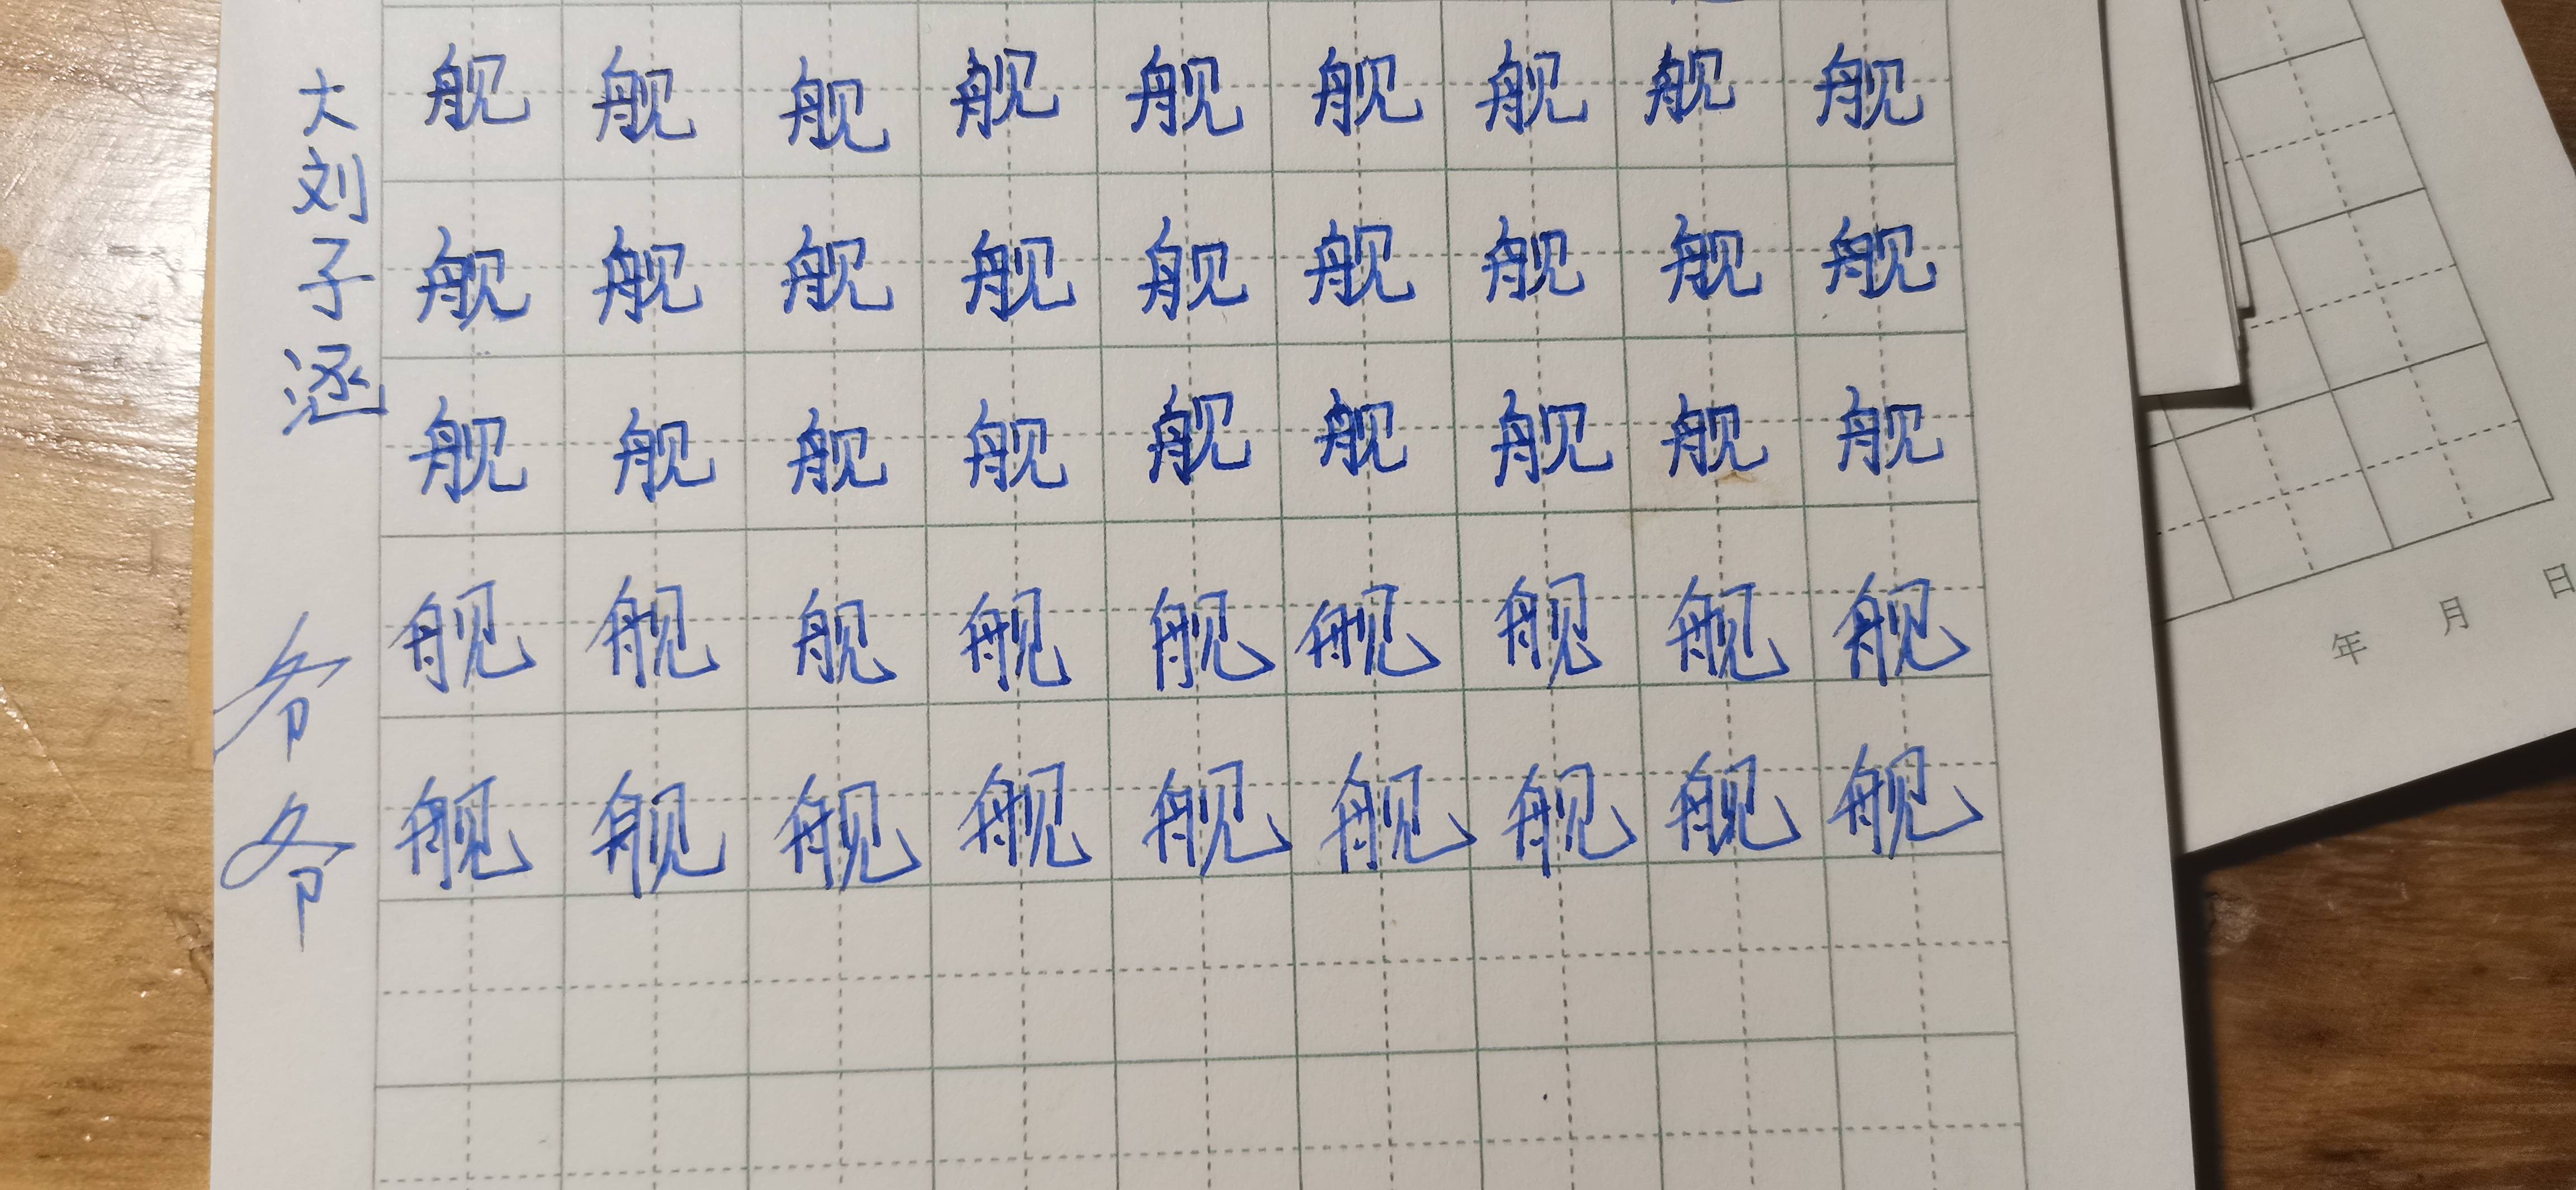 大刘子涵
爷爷
舰舰舰舰舰舰舰舰舰
舰舰舰舰舰舰舰舰舰
舰舰舰舰舰舰舰舰舰
舰舰舰舰舰舰舰舰舰
舰舰舰舰舰舰舰舰舰
年 月 日